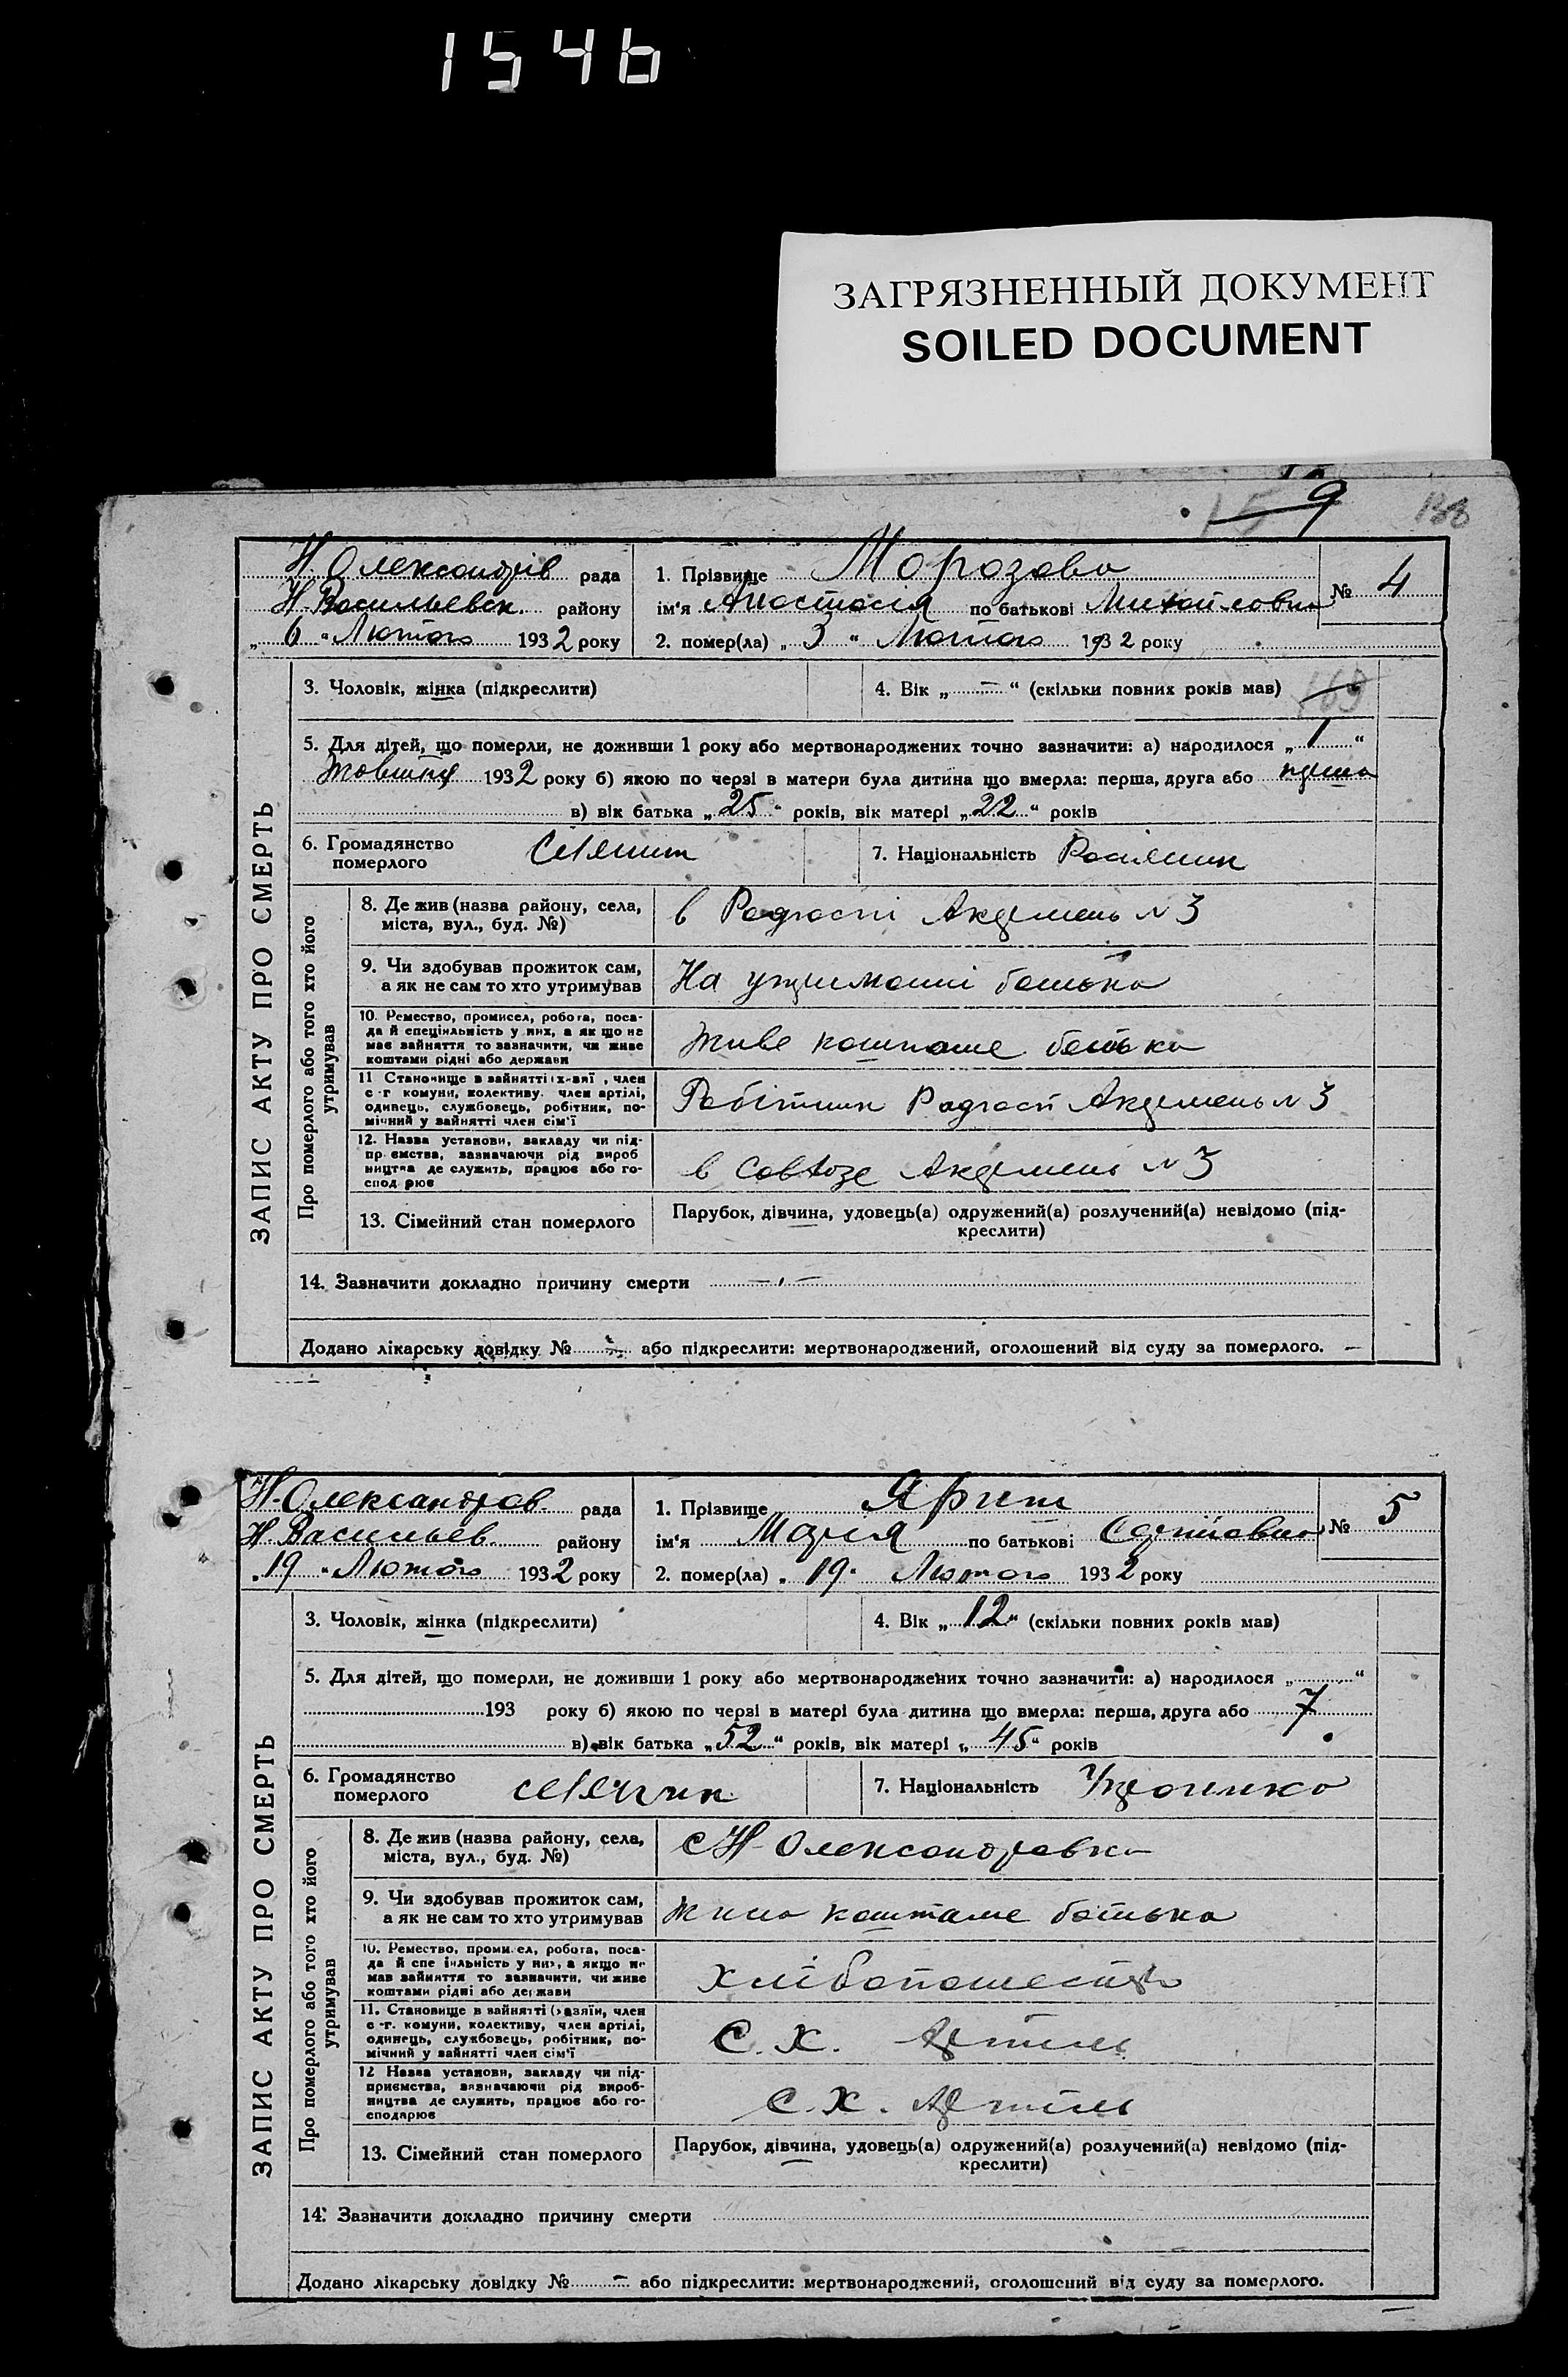 1546
ЗАГРЯЗНЕННЫЙ ДОКУМЕНТ
SOILED DOCUMENT
15 9 188
Н. Олександрів рада
Н. Васильевск. району
„ 6 “ Лютого 1932 року
1. Прізвище Морозова
ім'я Анастасія по батькові Михайловна
2. помер(ла) „ 3 “ Лютого 1932 року
№ 4
ЗАПИС АКТУ ПРО СМЕРТЬ
3. Чоловік, жінка (підкреслити)
4. Вік „ — “ (скільки повних років мав) 169
5. Для дітей, що померли, не доживши 1 року або мертвонароджених точно зазначити: а) народилося „ 1 “
1932 року б) якою по черзі в матери була дитина що вмерла: перша, друга або перша
в) вік батька „ 25 “ років, вік матері „ 22 “ років
6. Громадянство
померлого
Селянин
7. Національність Росіянин
Про померлого або того хто його
утримував
8. Де жив (назва району, села,
міста, вул., буд. №)
в Радгоспі Акдемень № 3
9. Чи здобував прожиток сам,
а як не сам то хто утримував
На утриманні батька
10. Ремество, промисел, робота, поса-
да й спеціяльність у них, а як що не
має зайняття то зазначити, чи живе
коштами рідні або держави
Живе коштаме батька
11 Становище в зайнятті , член
с-г комуни, колективу. член артілі,
одинець, службовець, робітник, по-
мічний у зайнятті член сім'ї
Робітник Радгосп Акдемень № 3
12. Назва установи, закладу чи під-
пр ємства, зазначаючи рід вироб
ництва де служить, працює або го-
спод рює
в Совхозе Акдемень № 3
13. Сімейний стан померлого
Парубок, дівчина, удовець(а) одружений(а) розлучений(а) невідомо (під-
креслити)
14. Зазначити докладно причину смерти
Додано лікарську довідку № або підкреслити: мертвонароджений, оголошений від суду за померлого. —
Н-Олександров рада
Н. Васильев. району
„ 19 “ Лютого 1932 року
1. Прізвище
ім'я Марія по батькові
2. помер(ла) „ 19 “ Лютого 1932 року
№ 5
ЗАПИС АКТУ ПРО СМЕРТЬ
3. Чоловік, жінка (підкреслити)
4. Вік „ 12 “ (скільки повних років мав)
5. Для дітей, що померли, не доживши 1 року або мертвонароджених точно зазначити: а) народилося „ “
193 року б) якою по черзі в матері була дитина що вмерла: перша, друга або 7
в) вік батька „ 52 “ років, вік матері „ 45 “ років
6. Громадянство
померлого
селянин
7. Національність Українка
Про померлого або того хто його
утримував
8. Де жив (назва району, села,
міста, вул., буд. №)
с Н-Олександровка
9. Чи здобував прожиток сам,
а як не сам то хто утримував
коштаме батька
10. Ремество, промисел, робота, поса-
да й спеціяльність у них, а якщо не
мав зайняття то зазначити, чи живе
коштами рідні або держави
11. Становище в зайнятті (хазяїн, член
с-г. комуни, колективу, член артілі,
одинець, службовець, робітник, по-
мічний у зайнятті член сім'ї
С. Х. Артиль
12 Назва установи, закладу чи під-
приємства, зазначаючи рід вироб-
ництва де служить, працює або го-
сподарює
С. Х. Артиль
13. Сімейний стан померлого
Парубок, дівчина, удовець(а) одружений(а) розлучений(а) невідомо (під-
креслити)
14. Зазначити докладно причину смерти
Додано лікарську довідку № — або підкреслити: мертвонароджений, оголошений від суду за померлого.